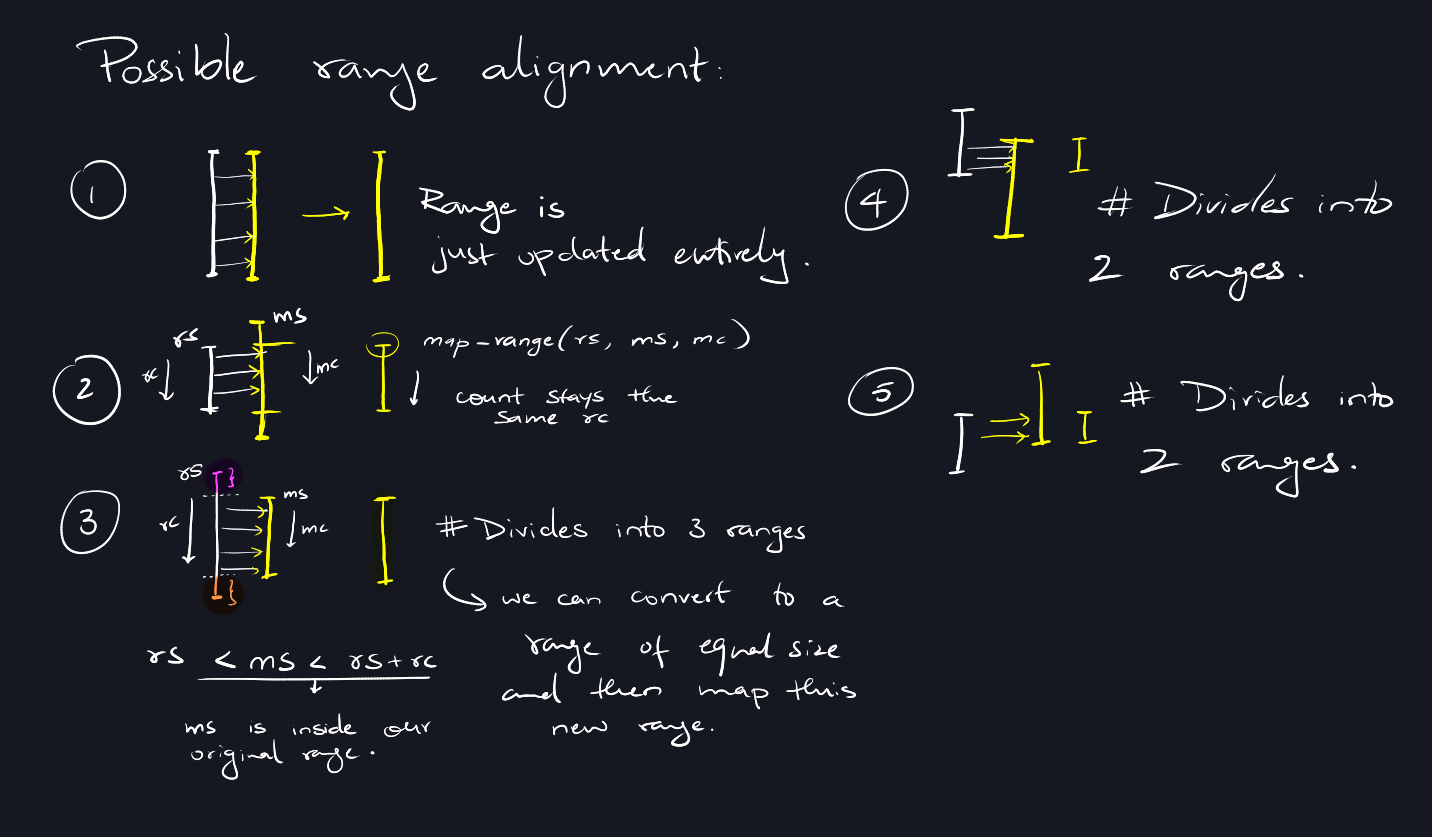 Possible range alignment:
1
Range is
just updated entirely.
2
rs
rc
ms
mc
map-range(rs, ms, mc)
count stays the
same rc
3
rs
rc
ms
mc
# Divides into 3 ranges
we can convert to a
range of equal size
and then map this
new range.
rs < ms < rs+rc
ms is inside our
original range.
4
# Divides into
2 ranges.
5
# Divides into
2 ranges.